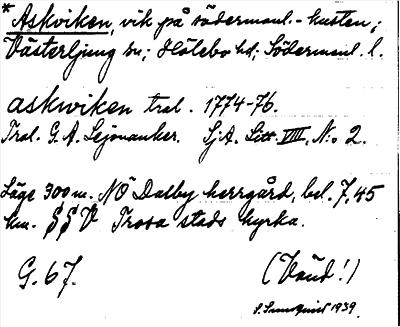 * Askviken, vik på södermanl.-kusten;
Västerljung sn; Hölebo hd; Södermanl. l.
askwiken tral. 1774-76.
Tral. G. A. Lejonanker. SjA. Litt. VIII, N:o 2.
Läge 300 m. NÖ Dalby herrgård, bel. 7,45
km. SSV Trosa stads kyrka.
G. 67. (Vänd!)
S. Sundqvist 1939.